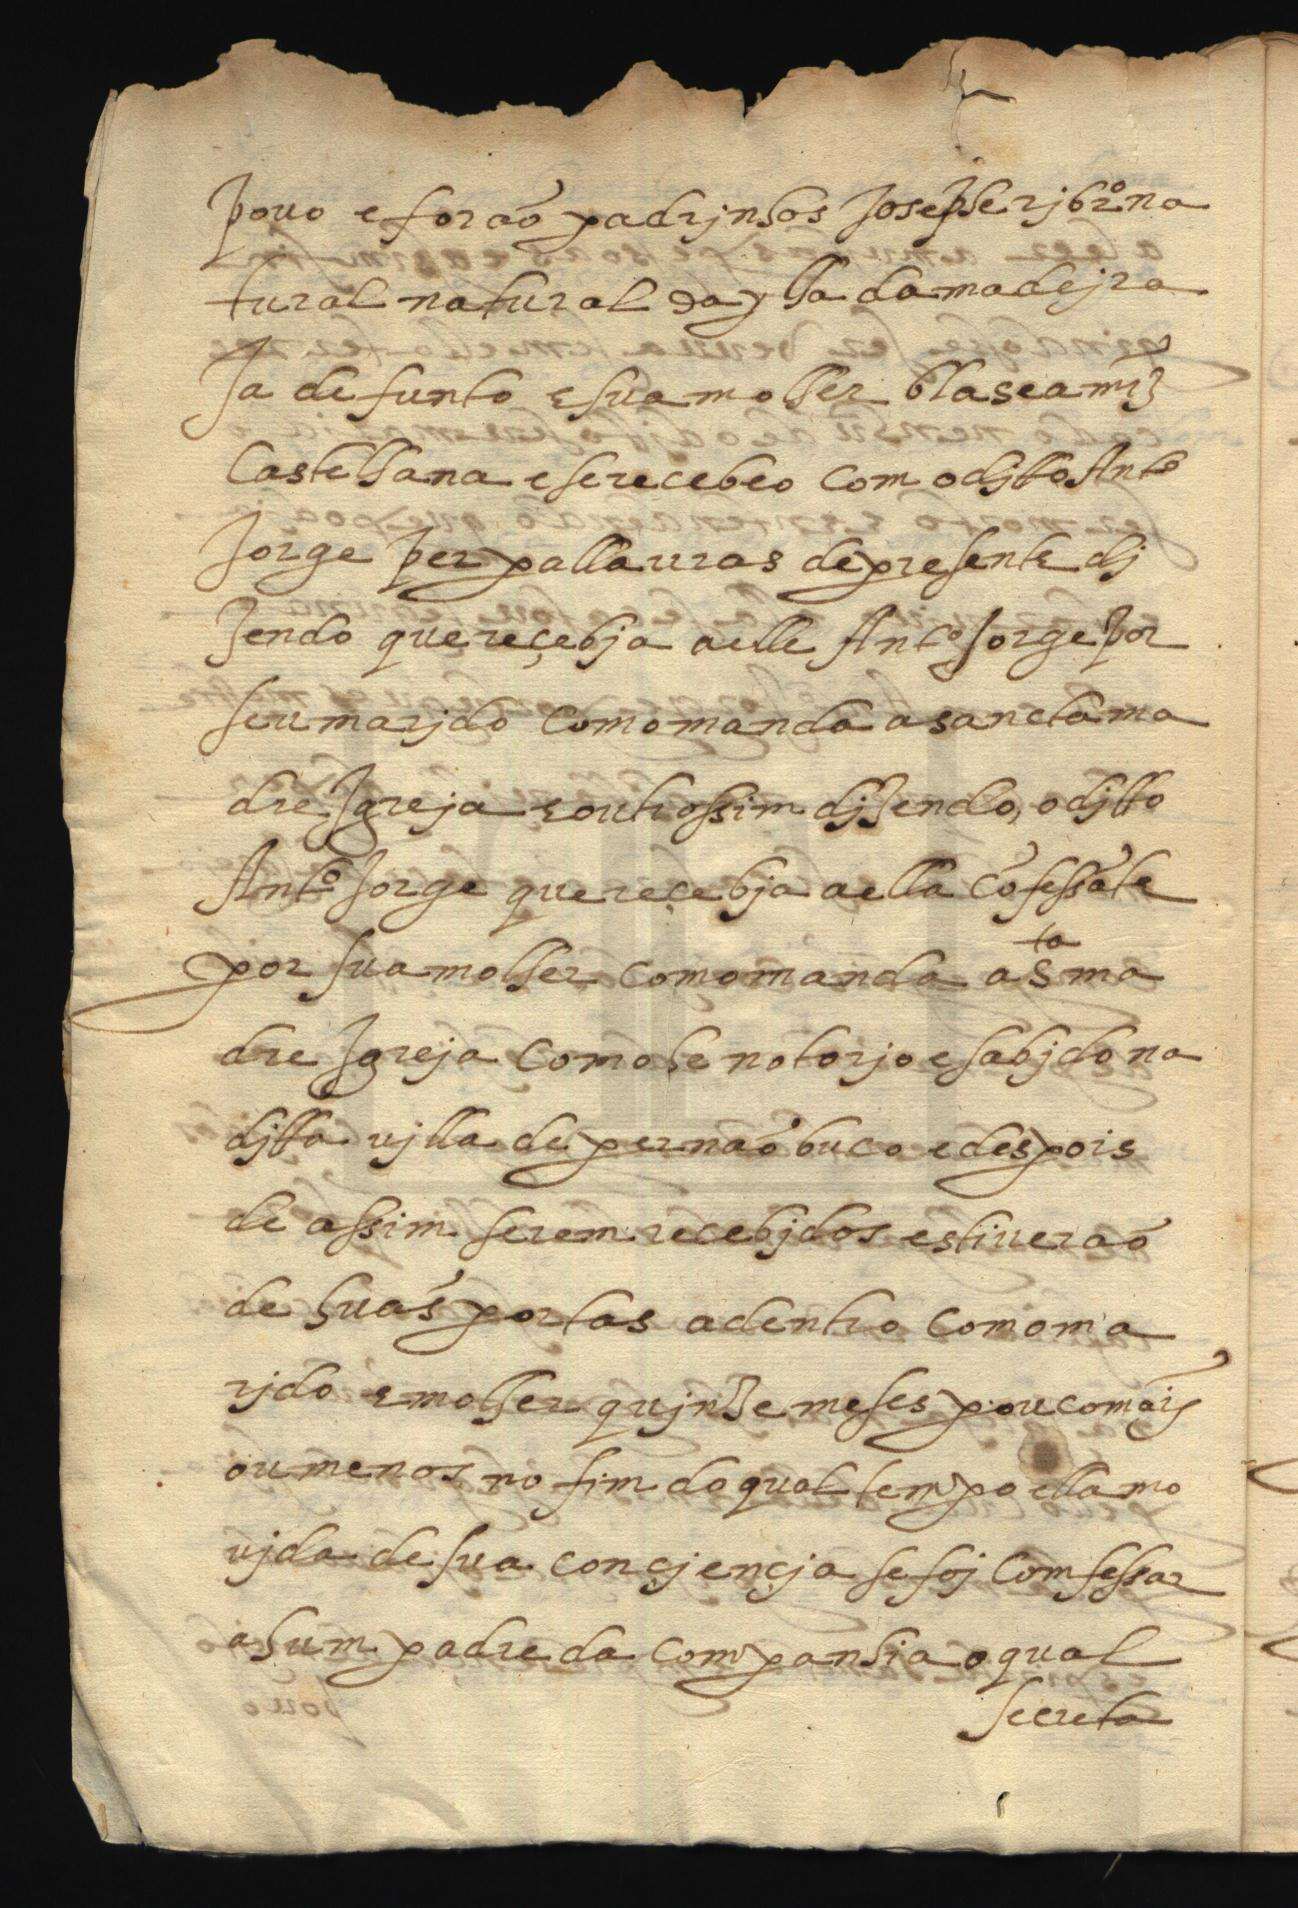 pouo e foraõ padrjnhos Joseph rjbrº na
tural natural da ylha da madejra
Ja defunto e sua molher blasea miz
Castelhana e se recebeo com o djtto Antº
Jorge per pallauras de presente dj
zendo que reçebja a elle Antº Jorge por
seu marjdo como manda a sancta ma
dre Igreja e outrossim djzendo, o djtto
Antº Jorge que reçebja a ella cõfessãte
por sua molher como manda a Sta ma
dre Igreja como he notorjo e sabjdo na
djtta vjlla de pernaõbuco e despois
de assim serem recebjdos estiueraõ
de suas portas adentro como ma
rjdo e molher qujnze meses pouco mais
ou menos no fim do qual tempo ella mo
vjda de sua conçjençja se foj Comfessar
a hum padre da companhia o qual
secreta